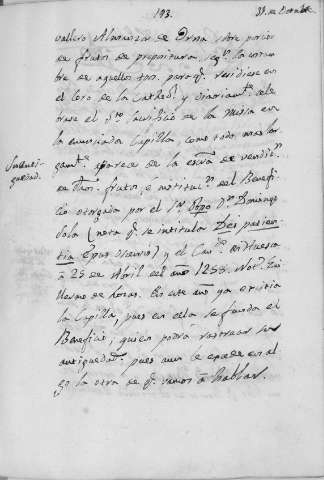 193. 31. de Octubre
vallero Almoravar de Orna sobre porcion
de frutos de propositura, seg.n la costum
bre de aquellos tpos. para q. residiese en
el Coro de la Cathed.l y diariam.te cele
brase el S.to Sacrificio de la Missa en
la enunciada Capilla, como todo mas lar
gam.te aparece de la escra de vendi.n
de dhos. frutos, é institu.n del Benefi
cio otorgada por el S.r Dgo D.n Domingo
Sola (nota q. se intitula Dei patien
tia Epus Oscensis) y el Cav.do en Huesca
á 25 de Abril del año 1258. Not.
de Loras. En este año ya existia
la Capilla, pues en ella se funda el
Beneficio, quien podrá rastrear su
antiguedad, pues aun le excede en al
go la otra de q. vamos á hablar.
Su anti
guedad.